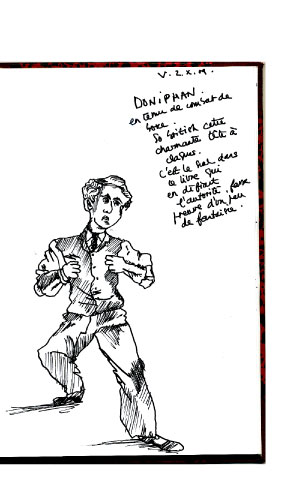 V.2.X.M.
DONIPHAN.
en tenue de combat de
boxe.
So british cette
charmante tête à
claque.
c'est le seul dans
ce livre qui
en défiant
l'autorité, fasse
preuve d'un peu
de fantaisie.